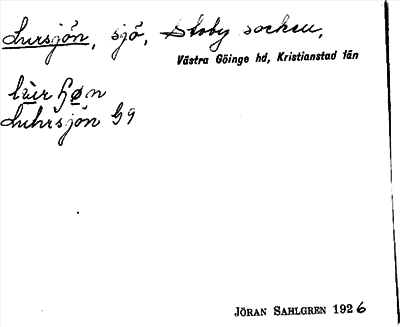 Lursjön, sjö, Stoby socken,
Västra Göinge hd, Kristianstad län
Luhrsjön G9
JÖRAN SAHLGREN 1926